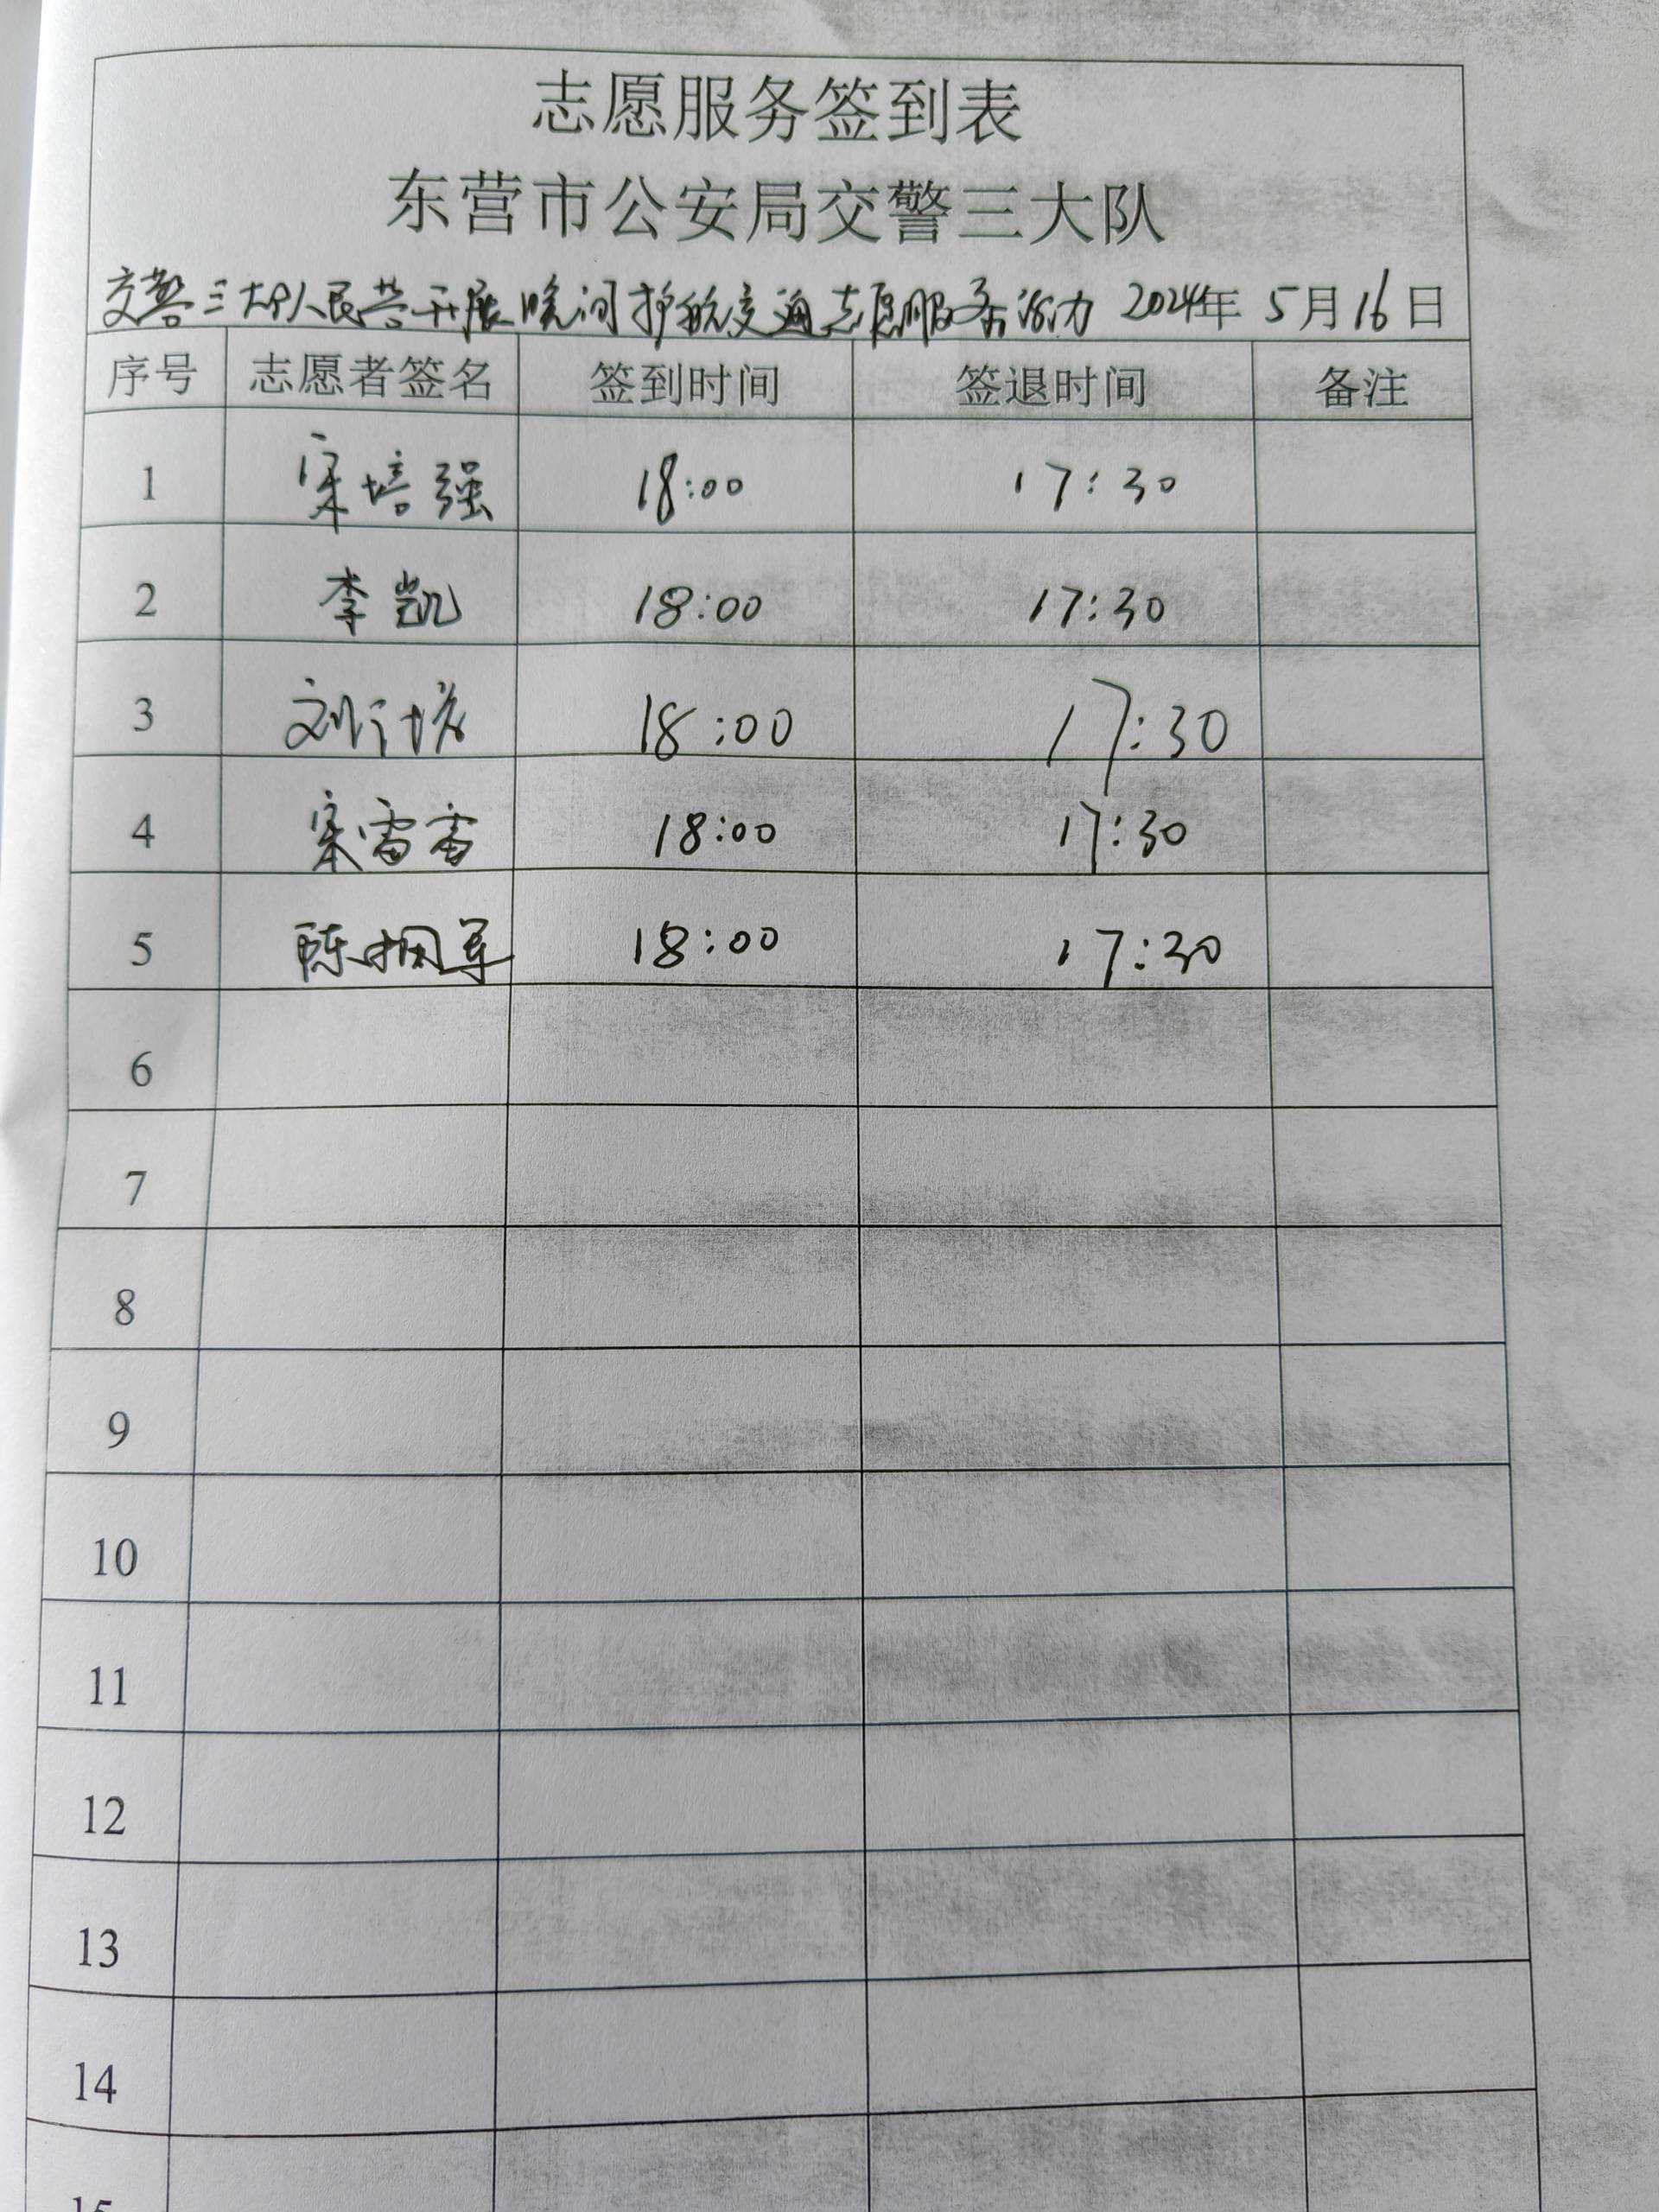 志愿服务签到表
东营市公安局交警三大队
交警三大队人民警开展晚间护航交通志愿服务活动 2024年 5月16日
序号 志愿者签名 签到时间 签退时间 备注
1 宋培强 18:00 17:30
2 李凯 18:00 17:30
3 刘 18:00 17:30
4 宋雷雷 18:00 17:30
5 陈拥军 18:00 17:30
6
7
8
9
10
11
12
13
14
15